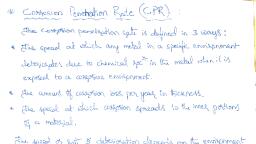 * Corrosion Penetration Rate (CPR) :
The corrosion penetration rate is defined in 3 ways:
* The speed at which any metal in a specific environment
deteriorates due to chemical rxn in the metal when it is
exposed to a corrosive environment.
* The amount of corrosion loss per year in thickness.
* The speed at which corrosion spreads to the inner portions
of a material.
The speed or rate of deterioration depends on the environment